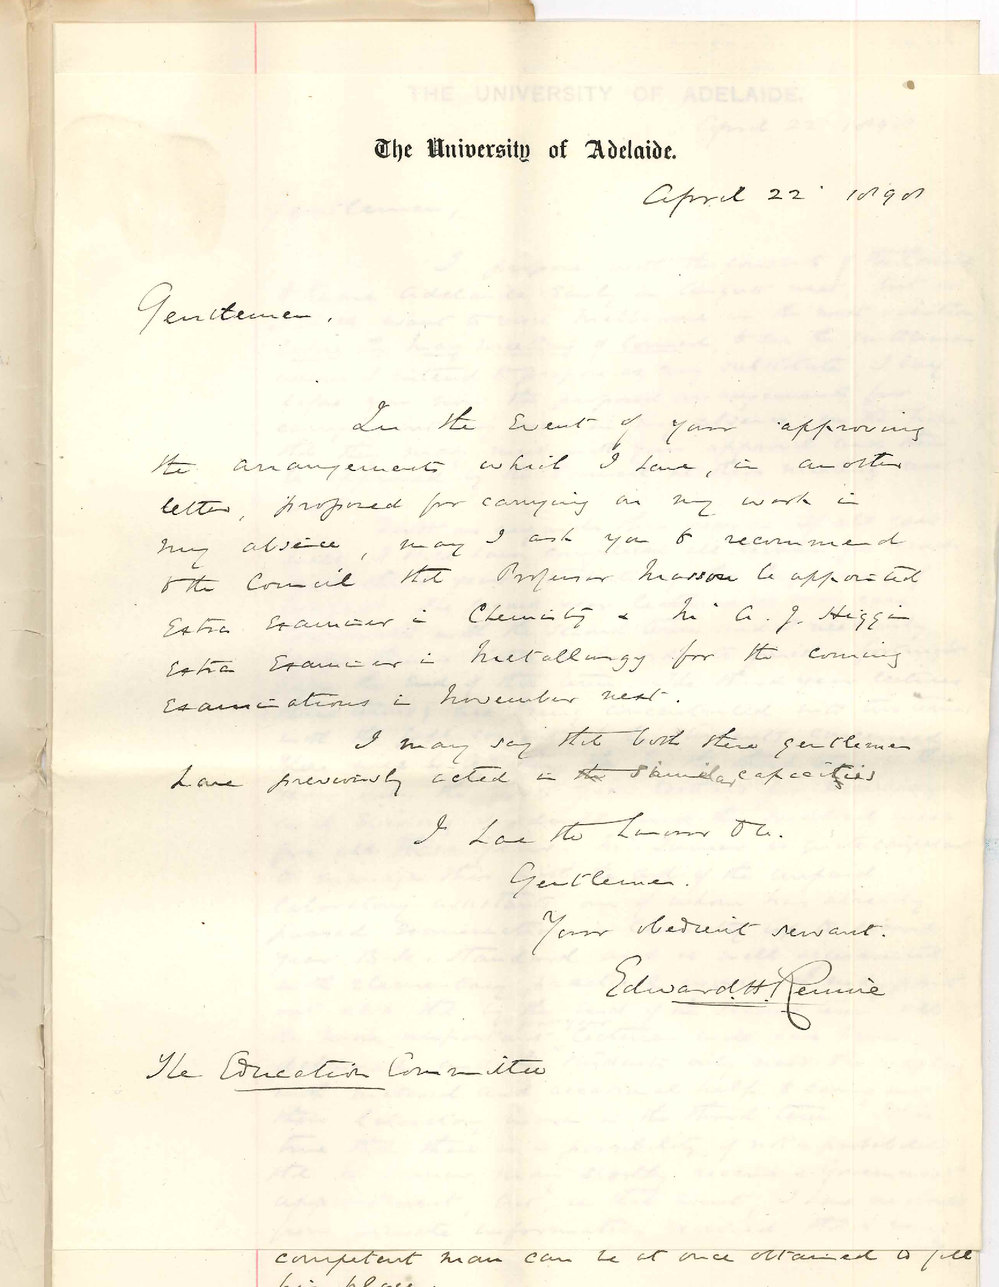 The University of Adelaide.
April 22 1898
Gentlemen,
In the Event of your approving
the arrangements which I have, in another
letter, proposed for carrying on my work in
my absence, may I ask you to recommend
to the Council that Professor Masson be appointed
Extra Examiner in Chemistry & Mr A. J. Higgin
Extra Examiner in Metallurgy for the coming
Examinations in November next.
I may say that both these gentlemen
have previously acted in the similar capacities
I have the honour to be.
Gentlemen.
Your obedient servant.
Edward H. Rennie
The Education Committee
competent man can be at once obtained to fill
his place.